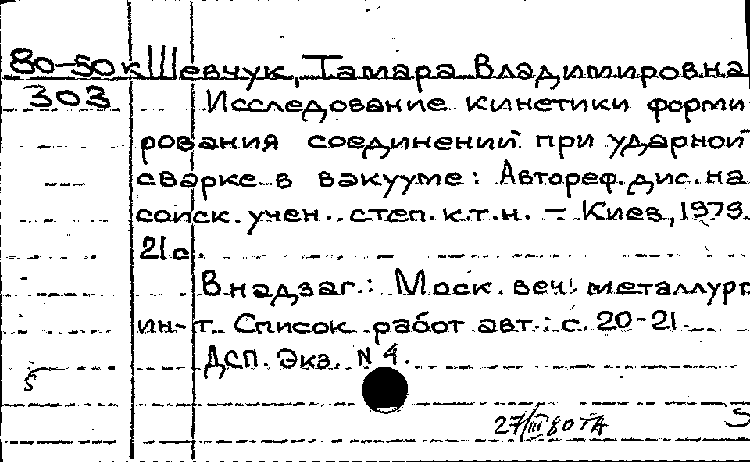 80-50к Шевчук, Тамара Владимировна
303 Исследование кинетики форми
рования соединений при ударной
сварке в вакууме: Автореф. дис. на
соиск. учен. степ. к.т.н. – Киев, 1979.
21с.
В надзаг.: Моск. веч. металлург.
ин-т. Список работ авт.: с. 20-21.
ДСП. Экз. N 4.
27/III 80